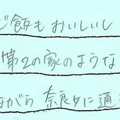 ご飯もおいしいし
第2の家のような
ながら 奈良女に通